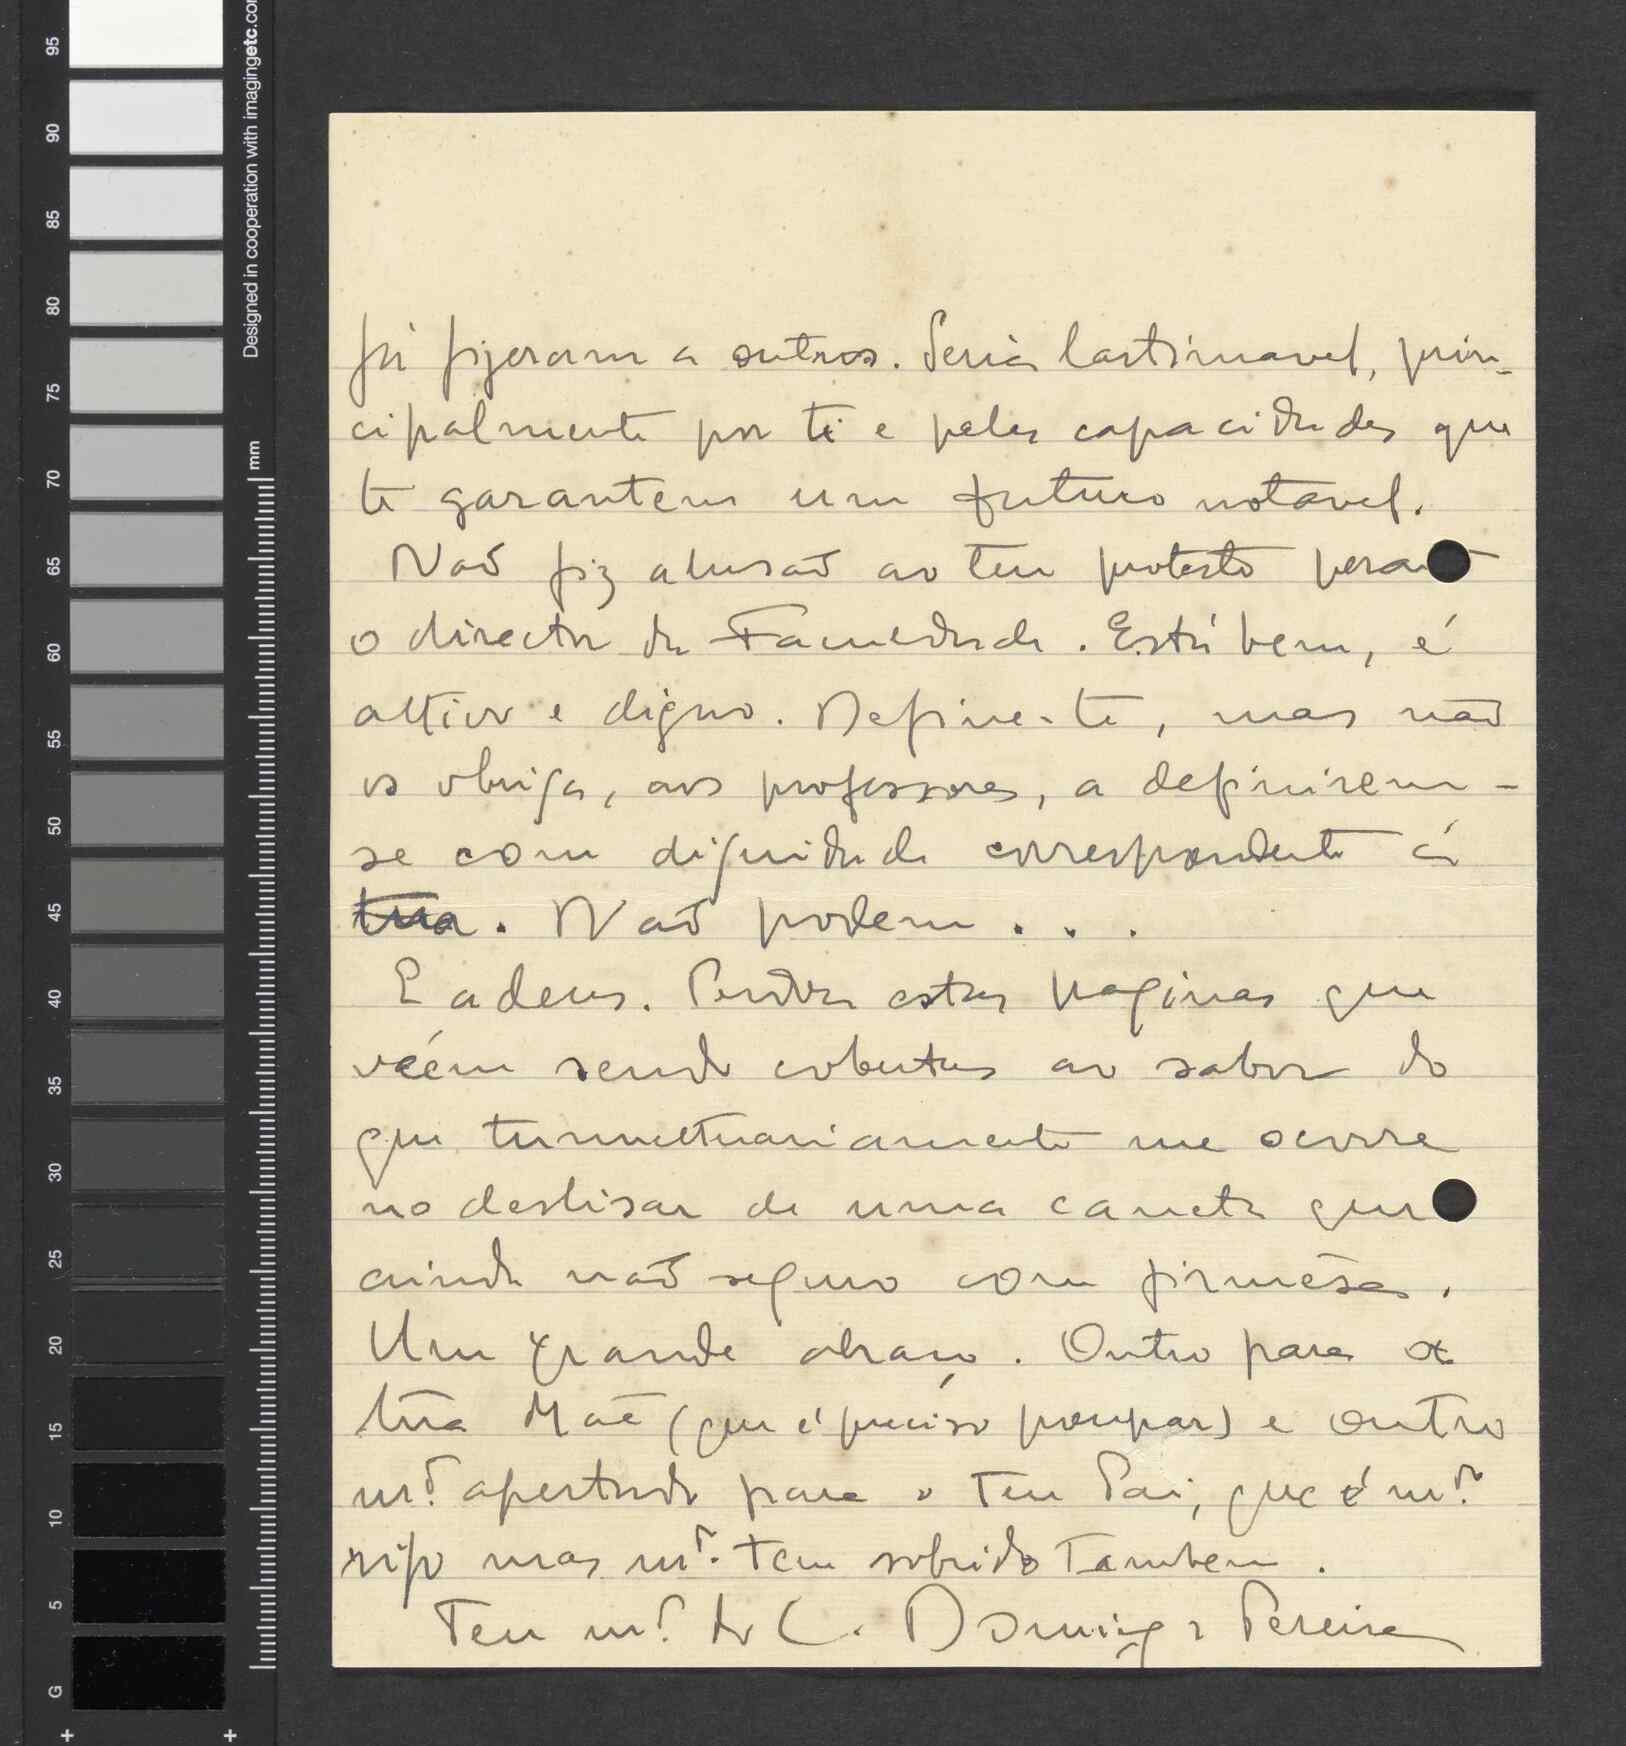 95
90
85
80
75
70
65
60
55
50
45
40
35
30
25
20
15
10
5
G
Designed in cooperation with imagingetc.com
mm
já fizeram a outros. Seria lastimavel, prin-
cipalmente por ti e pelas capacidades que
te garantem um futuro notavel.
Naõ fiz alusaõ ao teu protesto perant
o director da Faculdade. Está bem, é
altivo e digno. Define-te, mas naõ
os obriga, aos professores, a definirem-
se com dignidade correspondente á
tua. Naõ podem...
E adeus. Perdôa estas paginas que
vcém sendo cobertas ao sabor do
que tumultuariamente me ocorre
no deslisar de uma caneta que
ainda naõ seguro com firmêsa.
Um grande abraço. Outro para a
tua Maẽ (que é preciso poupar) e outro
m.to apertado para o teu Pai, que é m.to
rijo mas m.to tem sofrido tambem.
Teu m.to do C. Domingos Pereira